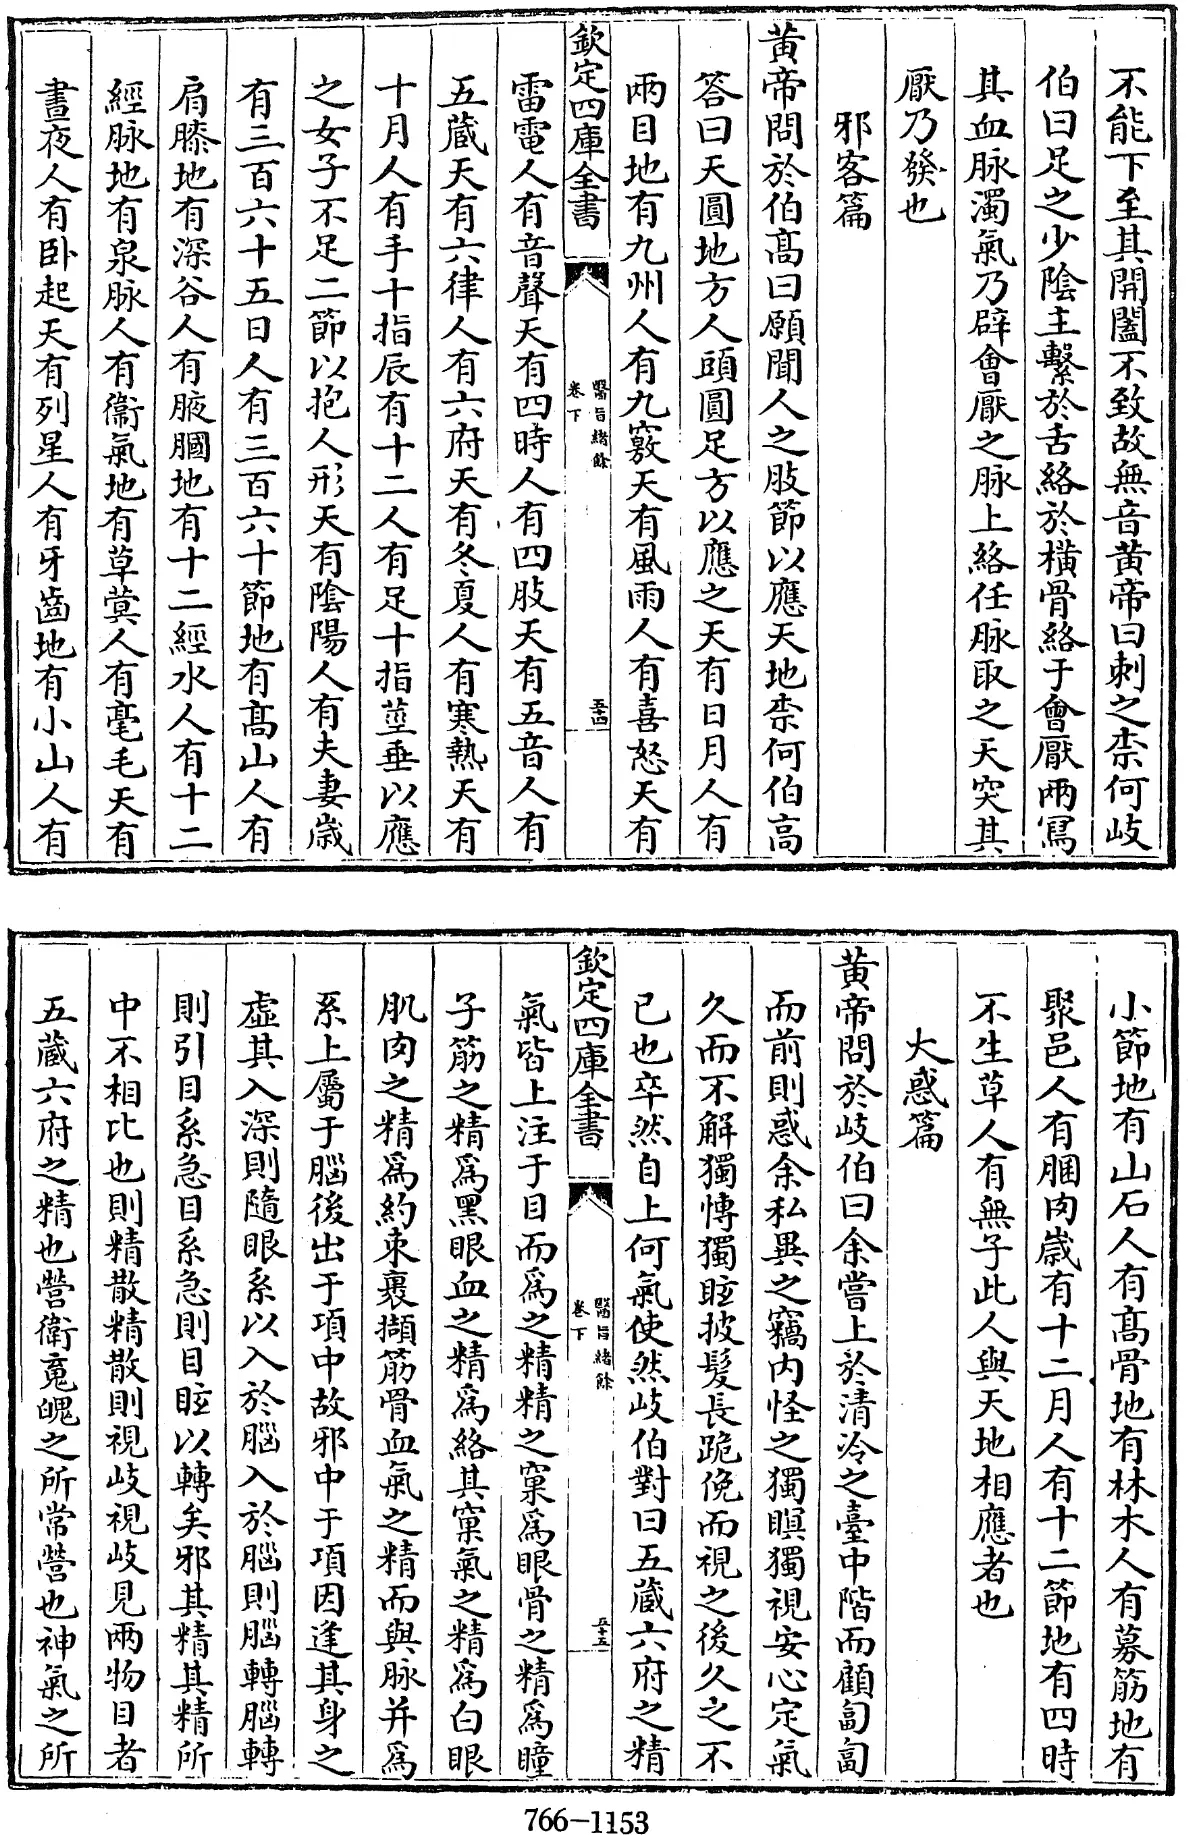 不能下至其開闔不致故無音黄帝曰刺之柰何岐
伯曰足之少陰主繫於舌絡於橫骨絡于會厭兩寫
其血脉濁氣乃辟會厭之脉上絡任脉取之天突其
厭乃發也
邪客篇
黄帝問於伯髙曰願聞人之肢節以應天地柰何伯高
答曰天圓地方人頭圓足方以應之天有日月人有
兩目地有九州人有九竅天有風雨人有喜怒天有
欽定四庫全書
醫旨緒餘
卷下
五十四
雷電人有音聲天有四時人有四肢天有五音人有
五蔵天有六律人有六府天有冬夏人有寒熱天有
十月人有手十指辰有十二人有足十指莖垂以應
之女子不足二節以抱人形天有陰陽人有夫妻嵗
有三百六十五日人有三百六十節地有髙山人有
肩膝地有深谷人有腋膕地有十二經水人有十二
經脉地有泉脉人有衞氣地有草蓂人有毫毛天有
晝夜人有卧起天有列星人有牙齒地有小山人有
小節地有山石人有髙骨地有林木人有募筋地有
聚邑人有䐃肉嵗有十二月人有十二節地有四時
不生草人有無子此人與天地相應者也
大惑篇
黄帝問於岐伯曰余嘗上於清冷之臺中階而顧匐匐
而前則惑余私異之竊内怪之獨瞑獨視安心定氣
久而不解獨慱獨眩披髮長跪俛而視之後久之不
已也卒然自上何氣使然岐伯對曰五蔵六府之精
欽定四庫全書
醫旨緒餘
卷下
五十五
氣皆上注于目而爲之精精之窠爲眼骨之精爲瞳
子筋之精爲黑眼血之精爲絡其窠氣之精爲白眼
肌肉之精爲約束裹擷筋骨血氣之精而與脉并爲
系上屬于腦後出于項中故邪中于項因逢其身之
虛其入深則隨眼系以入於腦入於腦則腦轉腦轉
則引目系急目系急則目眩以轉矣邪其精其精所
中不相比也則精散精散則視岐視岐見兩物目者
五蔵六府之精也營衛䰟魄之所常營也神氣之所
766-1153